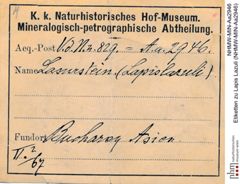 K. k. Naturhistorisches Hof-Museum.
Mineralogisch-petrographische Abtheilung.
Acq.-Post A.a. 2946.
Name Lasurstein (Lapislazuli)
Fundort Bucharay Asien
NHMW-MIN-Aa2946
Etiketten zu Lapis Lazuli (NHMW-MIN-Aa2946)
nhm